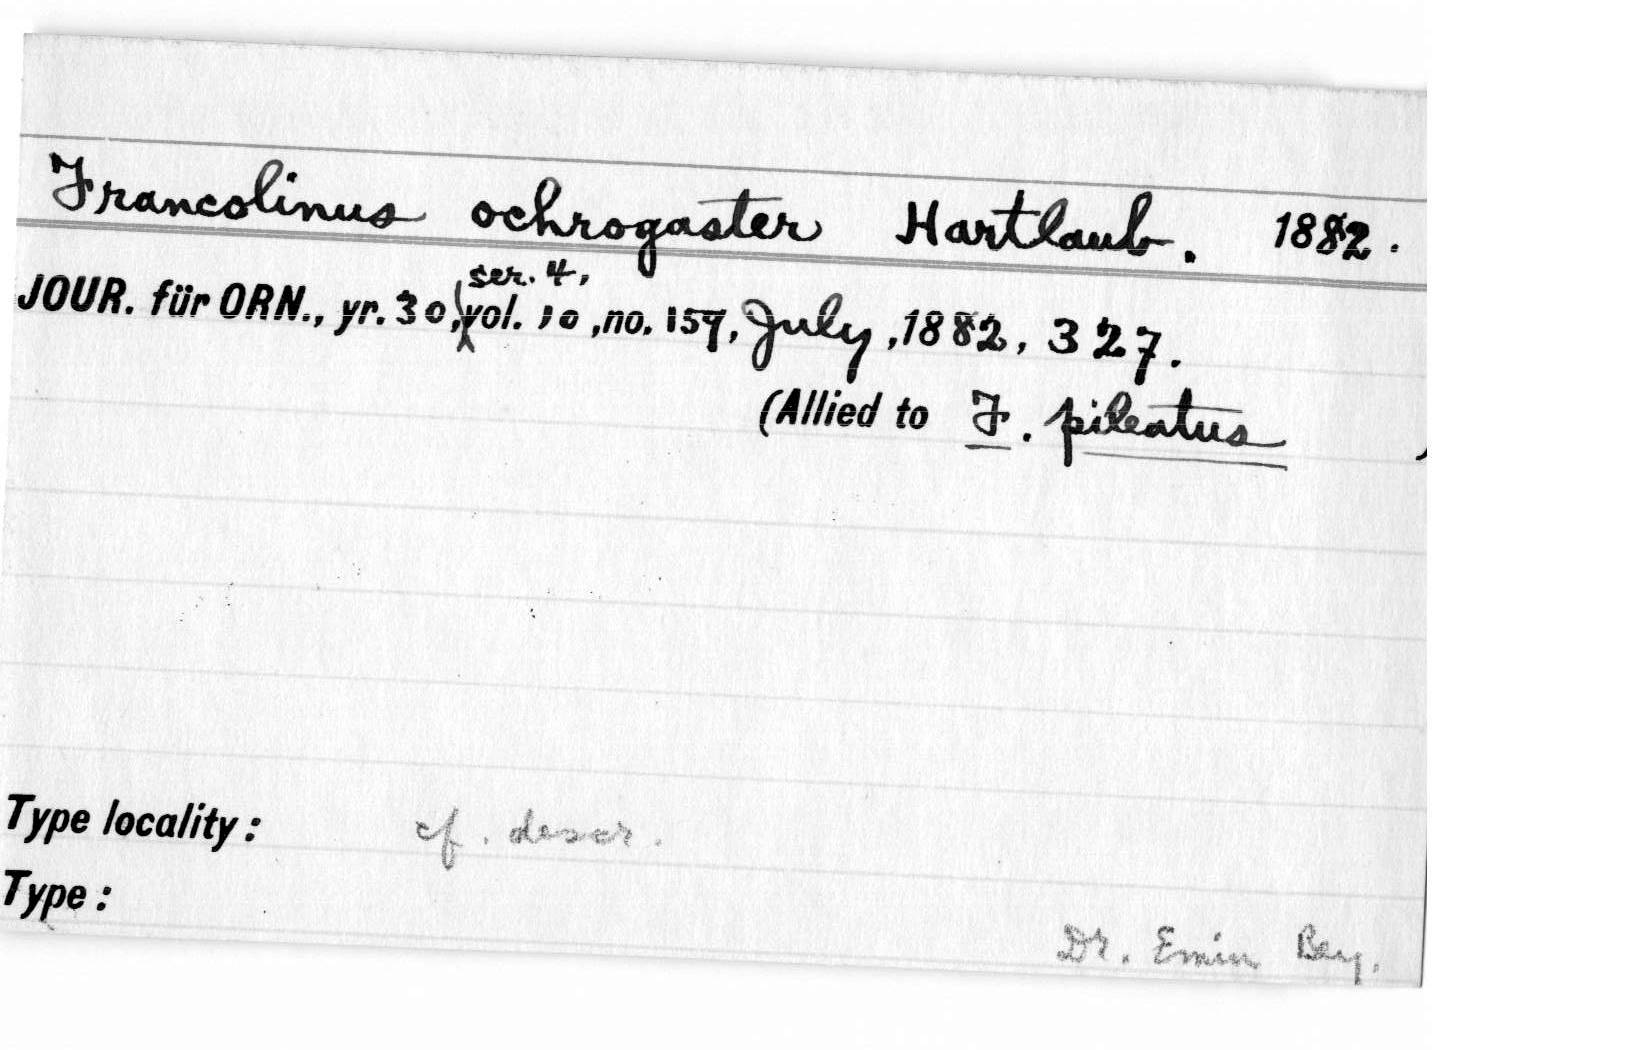 Francolinus ochrogaster Hartlaub. 1882.
JOUR. für ORN., yr. 30, ser. 4, vol. 10, no. 159, July, 1882, 327.
(Allied to F. pileatus )
Type locality: cf. descr.
Type:
Dr. Emin Bey.